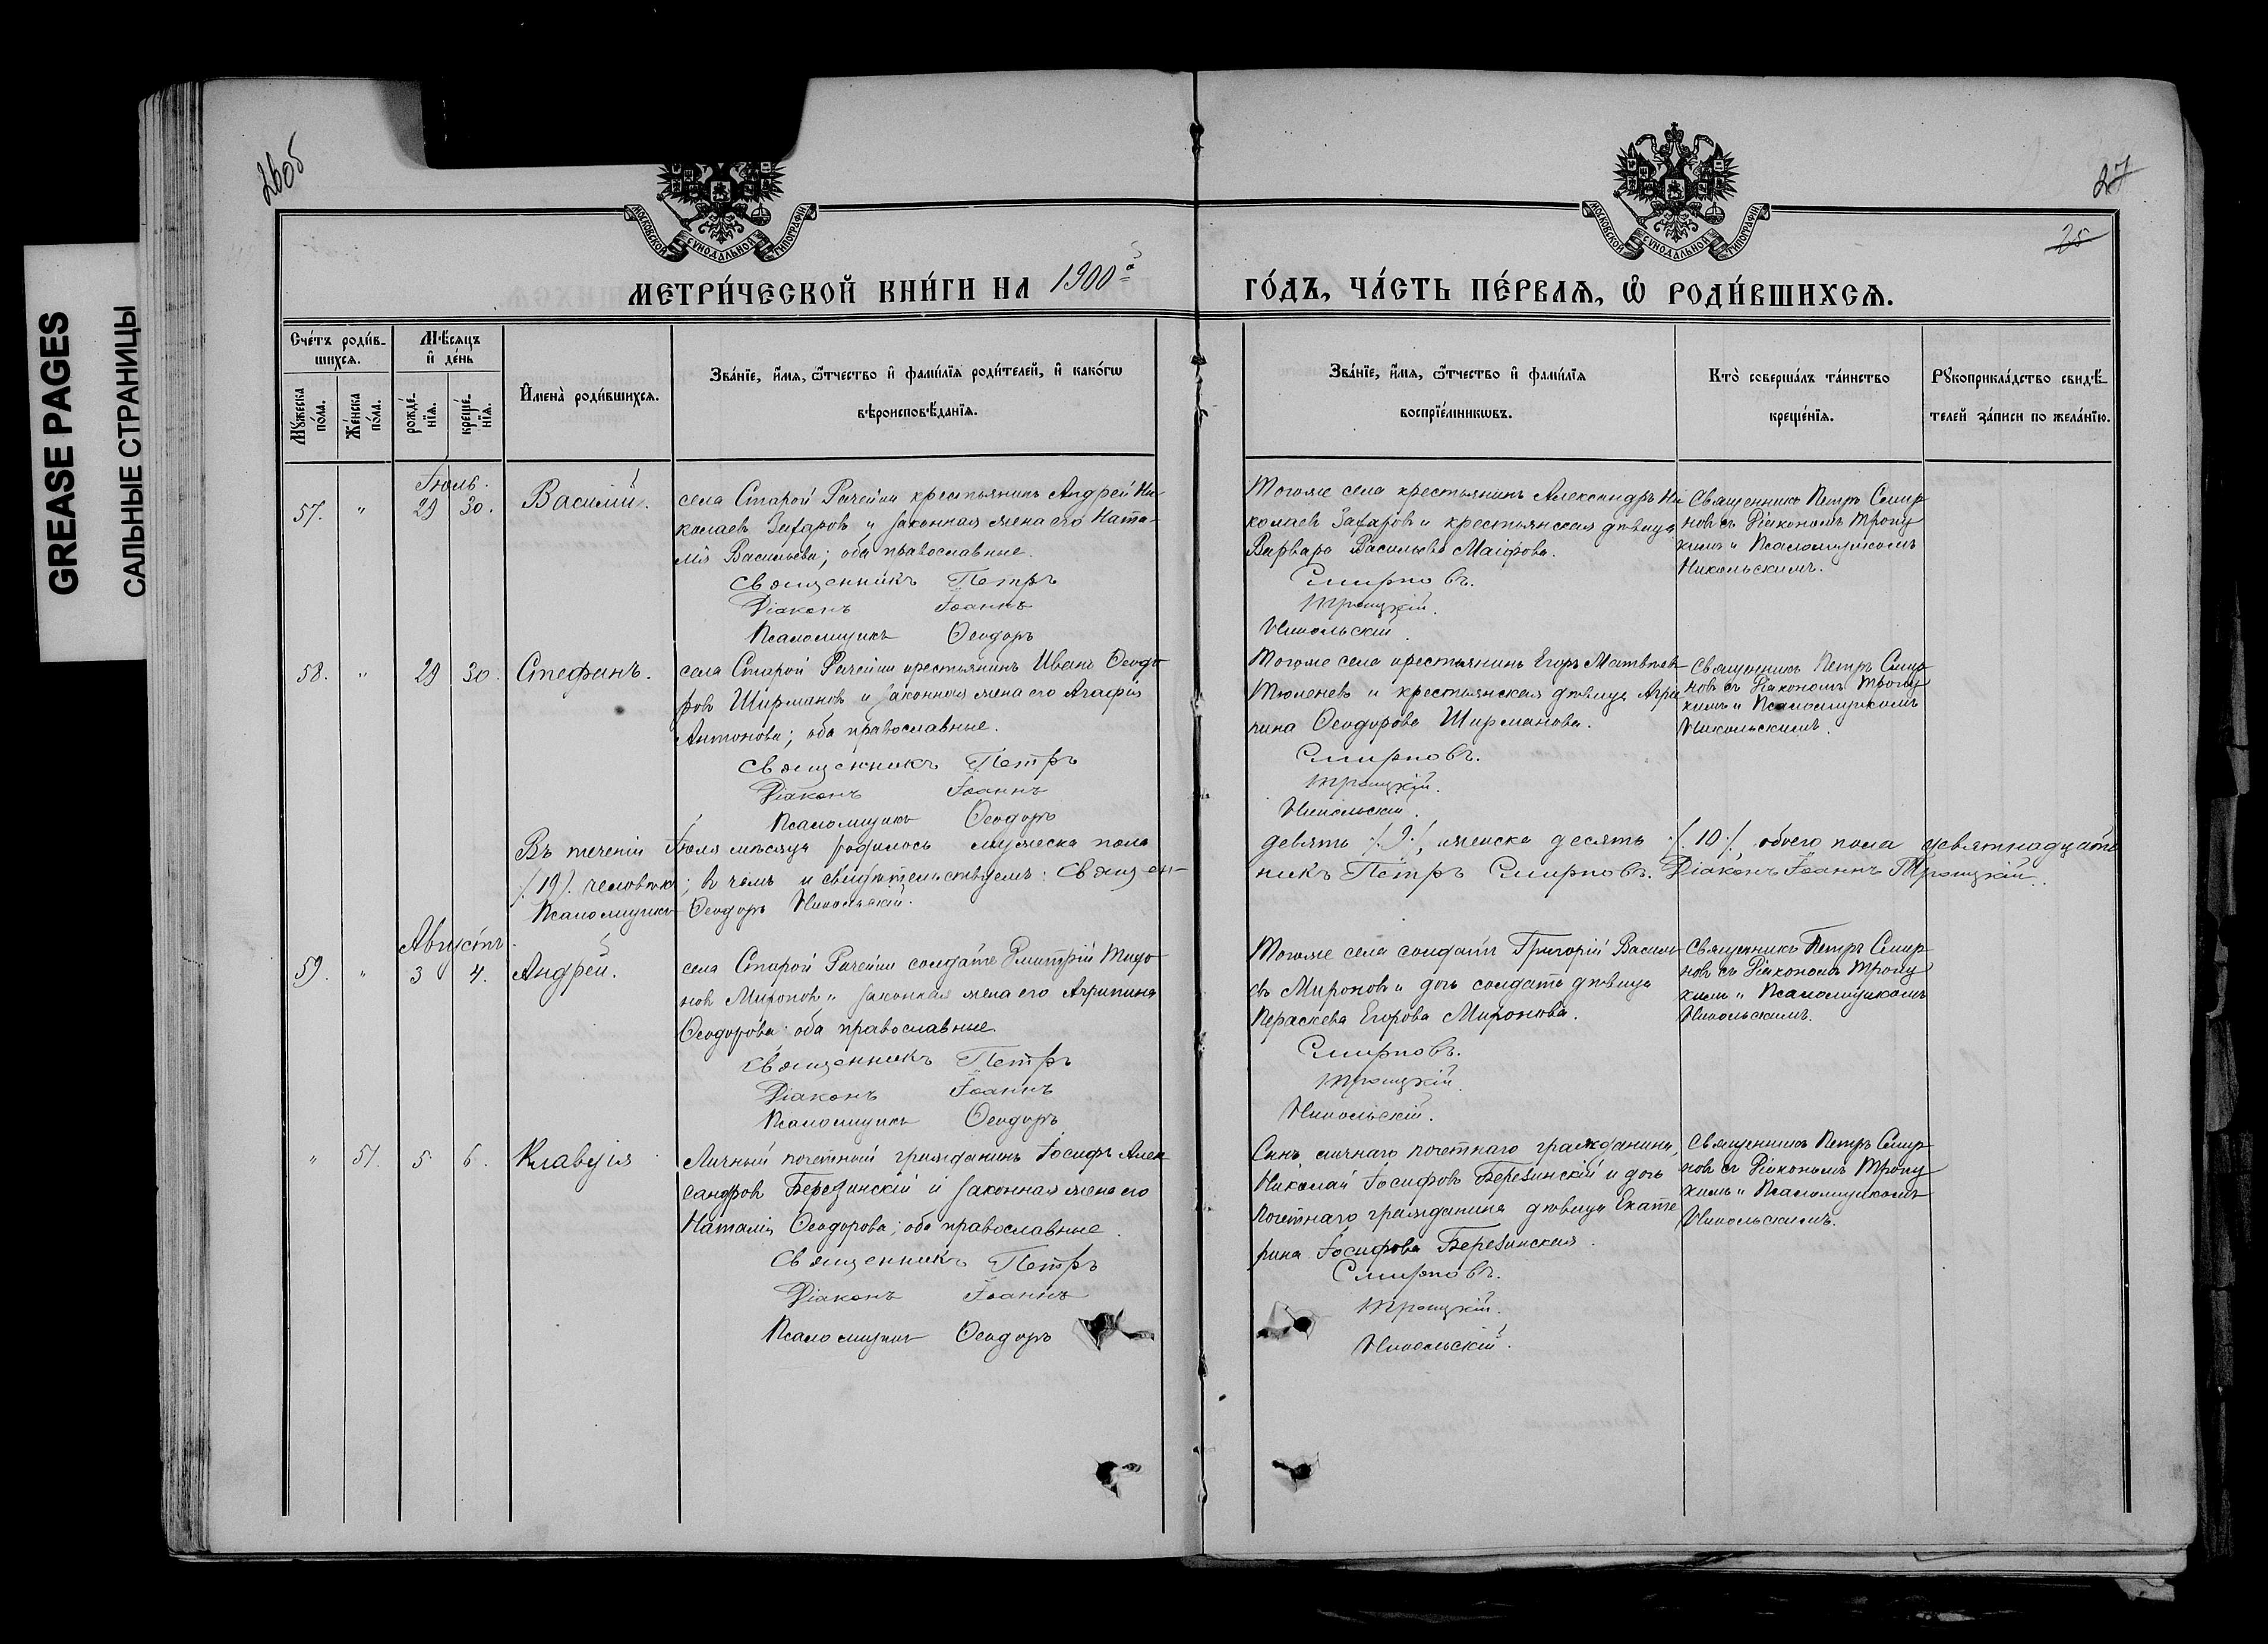 GREASE PAGES
САЛЬНЫЕ СТРАНИЦЫ
26об
27
25
МОСКОВСКОЙ СѴНОДАЛЬНОЙ ТИПОГРАФІИ
МОСКОВСКОЙ СѴНОДАЛЬНОЙ ТИПОГРАФІИ
МЕТРИ́ЧЕСКОЙ КНИ́ГИ НА 1900й
ГО́ДЪ, ЧА́СТЬ ПЕ́РВАѦ, Ѡ҆ РОДИ́ВШИХСѦ.
Сче́тъ роди́в-
шихсѧ.
Мꙋ́жеска по́ла.
Же́нска по́ла.
Мѣ́сяцъ
и҆ де́нь
рожде́-
нїѧ.
креще́-
нїѧ.
И҆мена̀ роди́вшихсѧ.
Зва́нїе, и҆́мѧ, ѻ҆́тчество и҆ фами́лїѧ роди́телей, и҆ како́гѡ
вѣроисповѣ́данїѧ.
Зва́нїе, и҆́мѧ, ѻ҆́тчество и҆ фами́лїѧ
воспрїе́мникѡвъ.
Кто̀ соверша́лъ та́инство
креще́нїѧ.
Рꙋкоприкла́дство свидѣ́-
телей за́писи по жела́нїю.
Іюль.
57. " 29 30. Василій.
села Старой Рачейки крестьянинъ Андрей Ни-
колаевъ Захаровъ и законная жена его Ната-
лія Васильева; оба православные.
Священникъ Петръ
Діаконъ Іоаннъ
Псаломщикъ Ѳеодоръ
Тогоже села крестьянинъ Александръ Ни-
колаевъ Захаровъ и крестьянская дѣвица
Варвара Васильева
Смирновъ.
Троицкій.
Никольскій.
Священникъ Петръ Смир-
новъ съ Діакономъ Троиц-
кимъ и Псаломщикомъ
Никольскимъ.
58. " 29 30. Стефанъ.
села Старой Рачейки крестьянинъ Иванъ Ѳеодо-
ровъ Ширмановъ и законная жена его Агафія
Антонова; оба православные.
Священникъ Петръ
Діаконъ Іоаннъ
Псаломщикъ Ѳеодоръ
Тогоже села крестьянинъ Егоръ Матвѣевъ
Тюленевъ и крестьянская дѣвица Агри-
пина Ѳеодорова Ширманова.
Смирновъ.
Троицкій.
Никольскій.
Священникъ Петръ Смир-
новъ съ Діакономъ Троиц-
кимъ и Псаломщикомъ
Никольскимъ.
Въ теченіи Іюля мѣсяца родилось мужеска пола
девять /.9./, женска десять /.10./, обоего пола девятнадцать
/.19/. человѣкъ; в чемъ и свидѣтельствуемъ: Священ-
никъ Петръ Смирновъ. Діаконъ Іоаннъ Троицкій.
Псаломщикъ Ѳеодоръ Никольскій.
Августъ.
59. " 3 4. Андрей.
села Старой Рачейки солдатъ Димитрій
новъ Мироновъ и законная жена его Агрипина
Ѳеодорова; оба православные
Священникъ Петръ
Діаконъ Іоаннъ
Псаломщикъ Ѳеодоръ
Тогоже села солдатъ Григорій Василь-
евъ Мироновъ и дочь солдата дѣвица
Параскева Егорова Миронова.
Смирновъ.
Троицкій.
Никольскій.
Священникъ Петръ Смир-
новъ съ Діакономъ Троиц-
кимъ и Псаломщикомъ
Никольскимъ.
" 51. 5 6. Клавдія
Личный почетный гражданинъ Іосифъ Алек-
сандровъ Березинскій и законная жена его
Наталія Ѳеодорова; оба православные.
Священникъ Петръ
Діаконъ Іоаннъ
Псаломщикъ Ѳеодоръ
Сынъ личнаго почетнаго гражданина,
Николай Іосифовъ Березинскій и дочь
почетнаго гражданина дѣвица Екате-
рина Іосифова Березинская.
Смирновъ.
Троицкій.
Никольскій.
Священникъ Петръ Смир-
новъ съ Діакономъ Троиц-
кимъ и Псаломщикомъ
Никольскимъ.